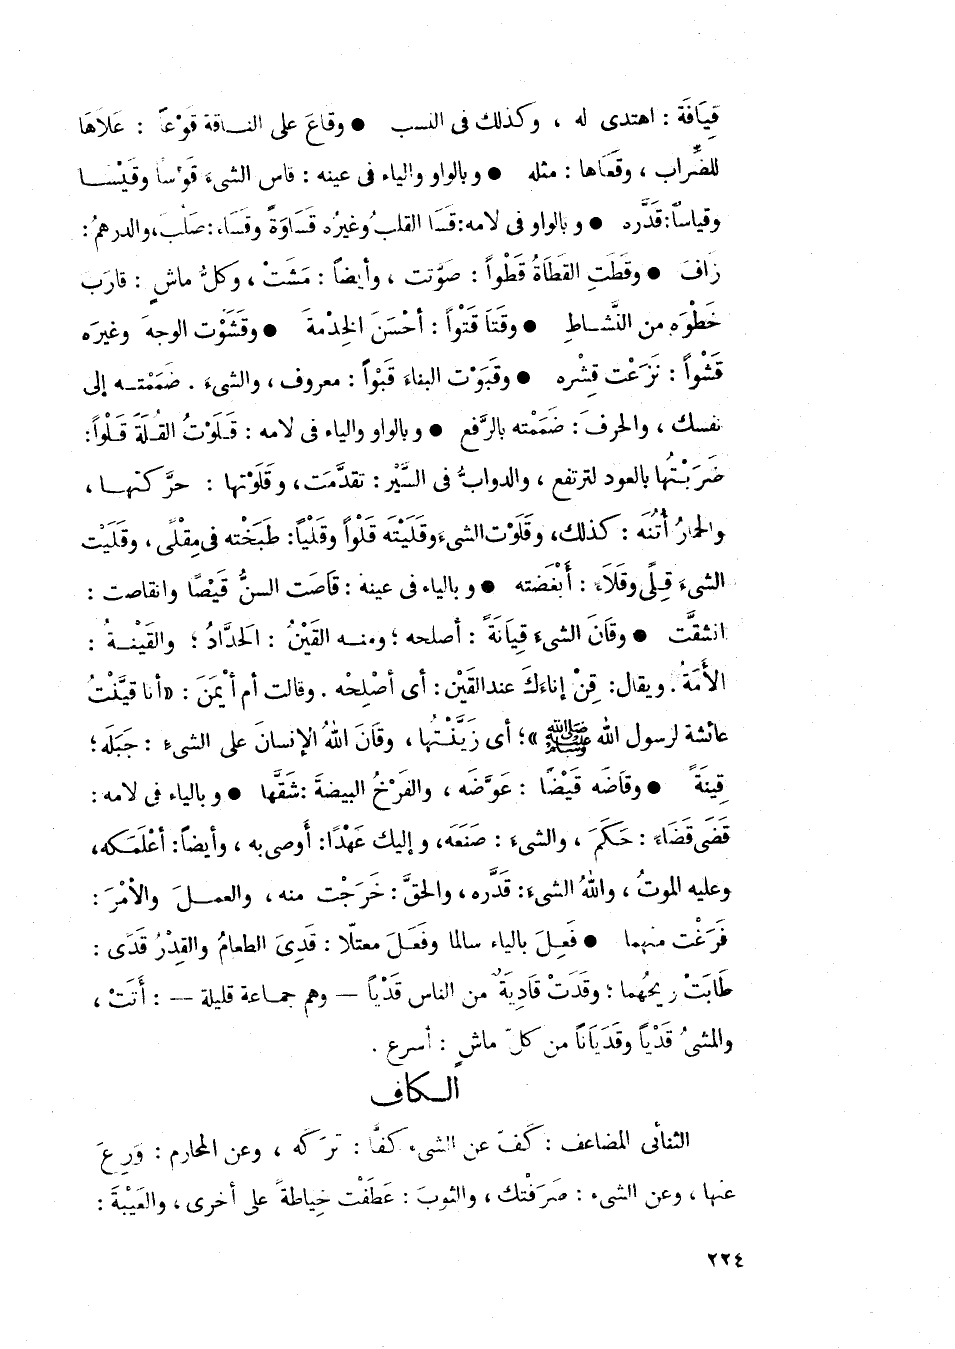 قِيَافَة : اهتدى له ، وكذلك فى النسب ● وقاعَ على النـاقة قَوْعاً : عَلاَهَا
للضِّراب ، وقَعَاها : مثله ● وبالواو والياء فى عينه : قاس الشىءَ قَوْسًا وقَيْسـا
وقياساً : قَدَّره ● وبالواو فى لامه : قَسَا القلبُ وغيرُه قَسَاوَةً وقَسَاءً : صلُب، والدرهمُ :
زَافَ ● وقَطَتِ القَطَاةُ قَطْواً : صَوَّتت ، وأيضاً : مَشَتْ ، وكلُّ ماشٍ : قارَبَ
خَطْوَه من النَّشـاطِ ● وقَتَا قَتْواً : أحْسَنَ الخِدْمةَ ● وقَشَوْت الوجهَ وغيرَه
قَشْواً : نَزَعْت قِشْره ● وقبَوْت البناءَ قَبْواً : معروف ، والشىءَ . ضَمَمْتـه إلى
نفسك ، والحرفَ : ضَمَمْته بالرَّفع ● وبالواو والياء فى لامه : قَـلَوْتُ القُـلَةَ قَـلْواً :
ضَرَبْتُها بالعود لترتفع ، والدوابُّ فى السَّيْر : تقدَّمَت ، وقَلَوْتها : حرَّكتهـا ،
والحمارُ أُتُنَه : كذلك، وقَلَوْت الشىءَ وقَلَيْتَه قَلْواً وقَلْياً : طَبَخْته فى مِقْلًى ، وقَلَيْت
الشىءَ قِـلًى وقَلاَءً : أَبْغَضته ● وبالياء فى عينه : قَاصَت السنُّ قَيْصًا وانقاصت :
انشقَّت ● وقَانَ الشىءَ قِيَانَةً : أصلحه ؛ ومنـه القَيْنُ : الحَدَّادُ ؛ والقَيْنـةُ :
الأَمَةُ . ويقال : قِنْ إناءَكَ عند القَيْن : أى أصْلِحْه . وقالت أم أيْمَنَ : «أنا قَيَّنْتُ
عائشة لرسول الله ﷺ » ؛ أى زَيَّنْتُها ، وقَانَ اللهُ الإنسانَ على الشىءِ : جَبَلَه ؛
قِينَةً ● وقَاضَه قَيْضًا : عَوَّضَه ، والفَرْخُ البيضةَ : شَقَّها ● وبالياء فى لامه :
قَضَى قَضَاءً : حَكَمَ ، والشىءَ : صَنَعَه، وإليك عَهْدًا : أَوصى به ، وأيضاً : أعْلَمَكه،
وعليه الموتُ ، واللهُ الشىءَ : قَدَّره ، والحقَّ : خَرَجْت منه ، والعمـلَ والأمْرَ :
فَرَغْت منهما ● فَعِلَ بالياء سالما وفَعَلَ معتلّا : قَدِىَ الطعامُ والقِدْرُ قَدًى :
طَابَتْ ريحُهما ؛ وقَدَتْ قَادِيَةٌ من الناس قَدْياً — وهم جمـاعة قليلة — : أَتَتْ ،
والمشىُ قَدْياً وقَدَيَاناً من كلّ ماشٍ : أسرع .
الـكاف
الثنائى المضاعف : كَفّ عن الشىء كَفًّا : تركَه ، وعن المحارم : وَرِعَ
عنها ، وعن الشىء : صَرَفْتك ، والثوبَ : عَطَفْت خِياطةً على أخرى ، والعَيْبَةَ :
٢٢٤